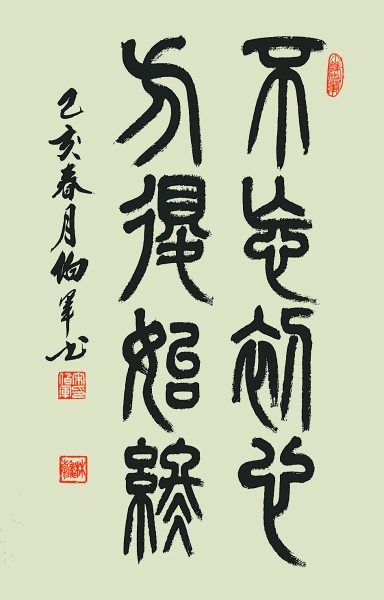 不忘初心
方得始終
己亥春月伯軍书